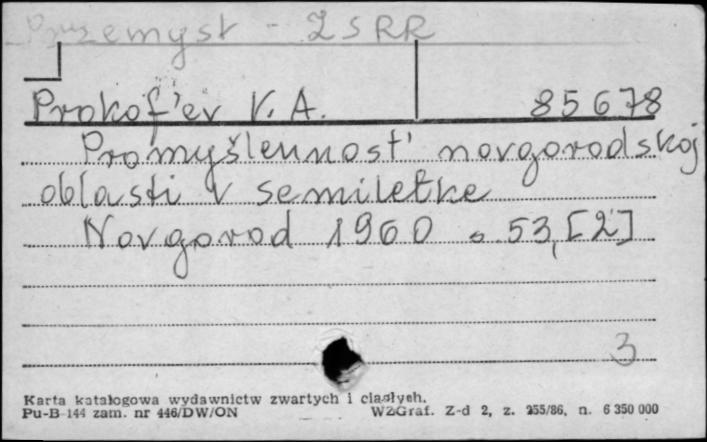 Przemysł - ZSRR
Prokof'ev V. A. 85678
Promyšlennost' novgorodskoj
oblasti v semiletke
Novgorod 1960 s. 53, [2]
3
Karta katalogowa wydawnictw zwartych i ciągłych.
Pu-B-144 zam. nr 446/DW/ON WZGraf. Z-d 2, z. 955/86, n. 6 350 000